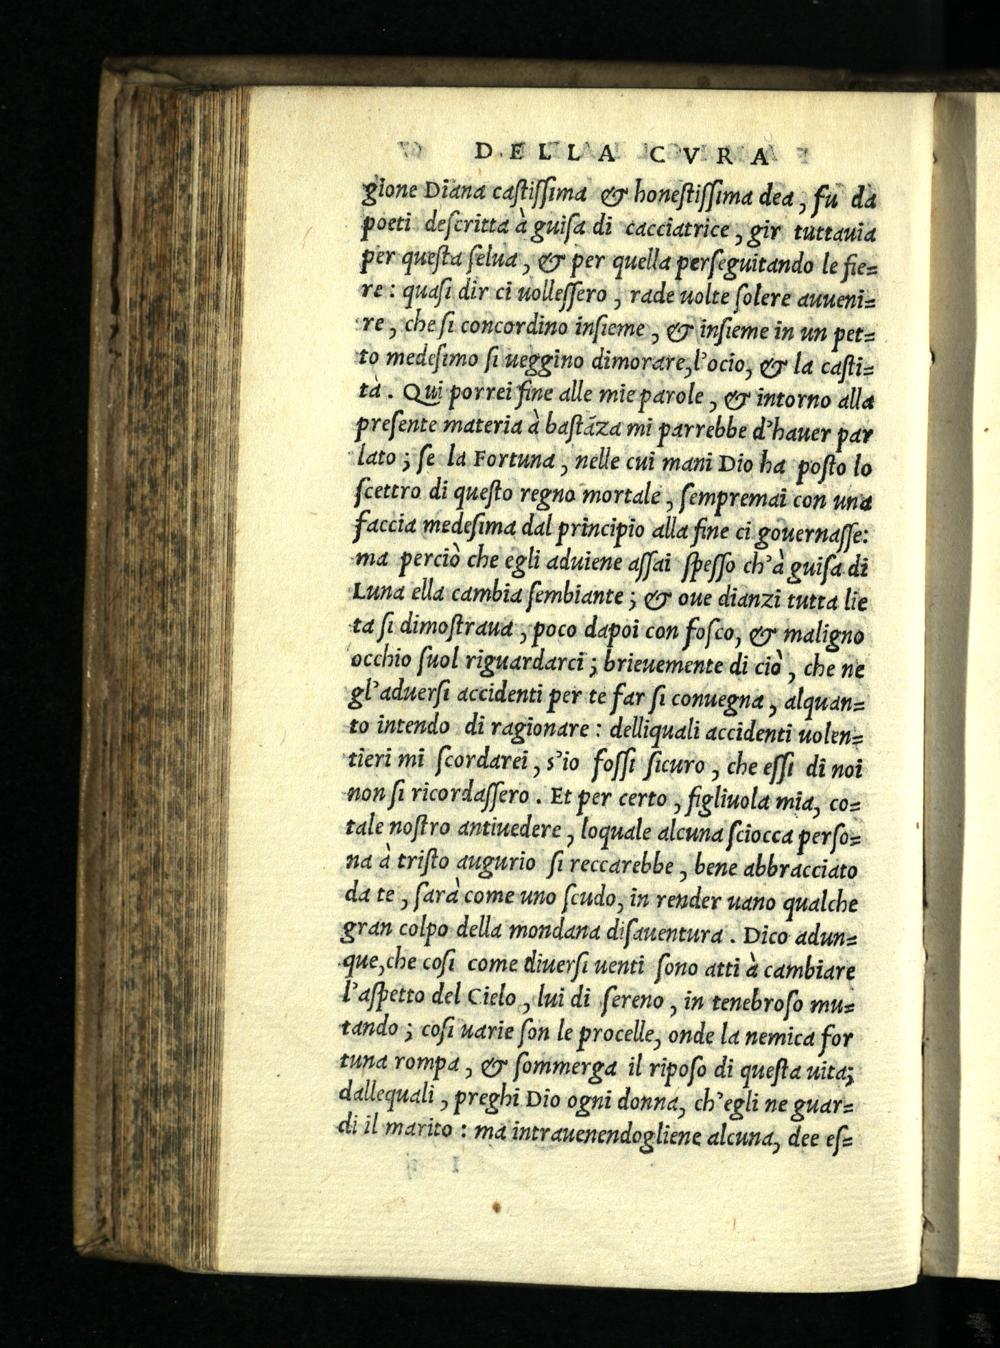 DELLA CVRA
gione Diana castissima & honestissima dea, fu da
poeti descritta à guisa di cacciatrice, gir tuttauia
per questa selua, & per quella perseguitando le fie=
re: quasi dir ci uollessero, rade uolte solere auueni=
re, che si concordino insieme, & insieme in un pet=
to medesimo si ueggino dimorare, l'ocio, & la casti=
tà. Qui porrei fine alle mie parole, & intorno alla
presente materia à bastāza mi parrebbe d'hauer par
lato; se la Fortuna, nelle cui mani Dio ha posto lo
scettro di questo regno mortale, sempremai con una
faccia medesima dal principio alla fine ci gouernasse:
ma perciò che egli aduiene assai spesso ch'à guisa di
Luna ella cambia sembiante; & oue dianzi tutta lie
ta si dimostraua, poco dapoi con fosco, & maligno
occhio suol riguardarci; brieuemente di ciò, che ne
gl'aduersi accidenti per te far si conuegna, alquan=
to intendo di ragionare: delliquali accidenti uolen=
tieri mi scordarei, s'io fossi sicuro, che essi di noi
non si ricordassero. Et per certo, figliuola mia, co=
tale nostro antiuedere, loquale alcuna sciocca perso=
na à tristo augurio si reccarebbe, bene abbracciato
da te, sarà come uno scudo, in render uano qualche
gran colpo della mondana disauentura. Dico adun=
que, che cosi come diuersi uenti sono atti à cambiare
l'aspetto del Cielo, lui di sereno, in tenebroso mu=
tando; cosi uarie son le procelle, onde la nemica for
tuna rompa, & sommerga il riposo di questa uita;
dallequali, preghi Dio ogni donna, ch'egli ne guar=
di il marito: ma intrauenendogliene alcuna, dee es=